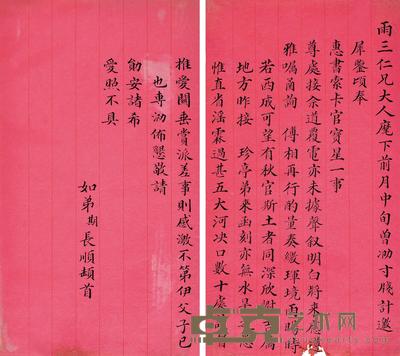 雨三仁兄大人麾下前月中旬曾泐寸牋計邀
犀鑒頃奉
惠書索卡官寶星一事
尊處接余道覆電亦未據聲叙明白將來應
雅囑商詢 傅相再行酌量奏繳琿境雨暘時
若西成可望有秋官斯土者同深欣
地方昨接 珍亭弟來函刻亦無水旱
惟直省滛霖過甚五大河决口數十處
推愛關垂賞派差事則感激不第伊父子已
也專泐佈懇敬請
勛安諸希
愛照不具
如弟期長順頓首